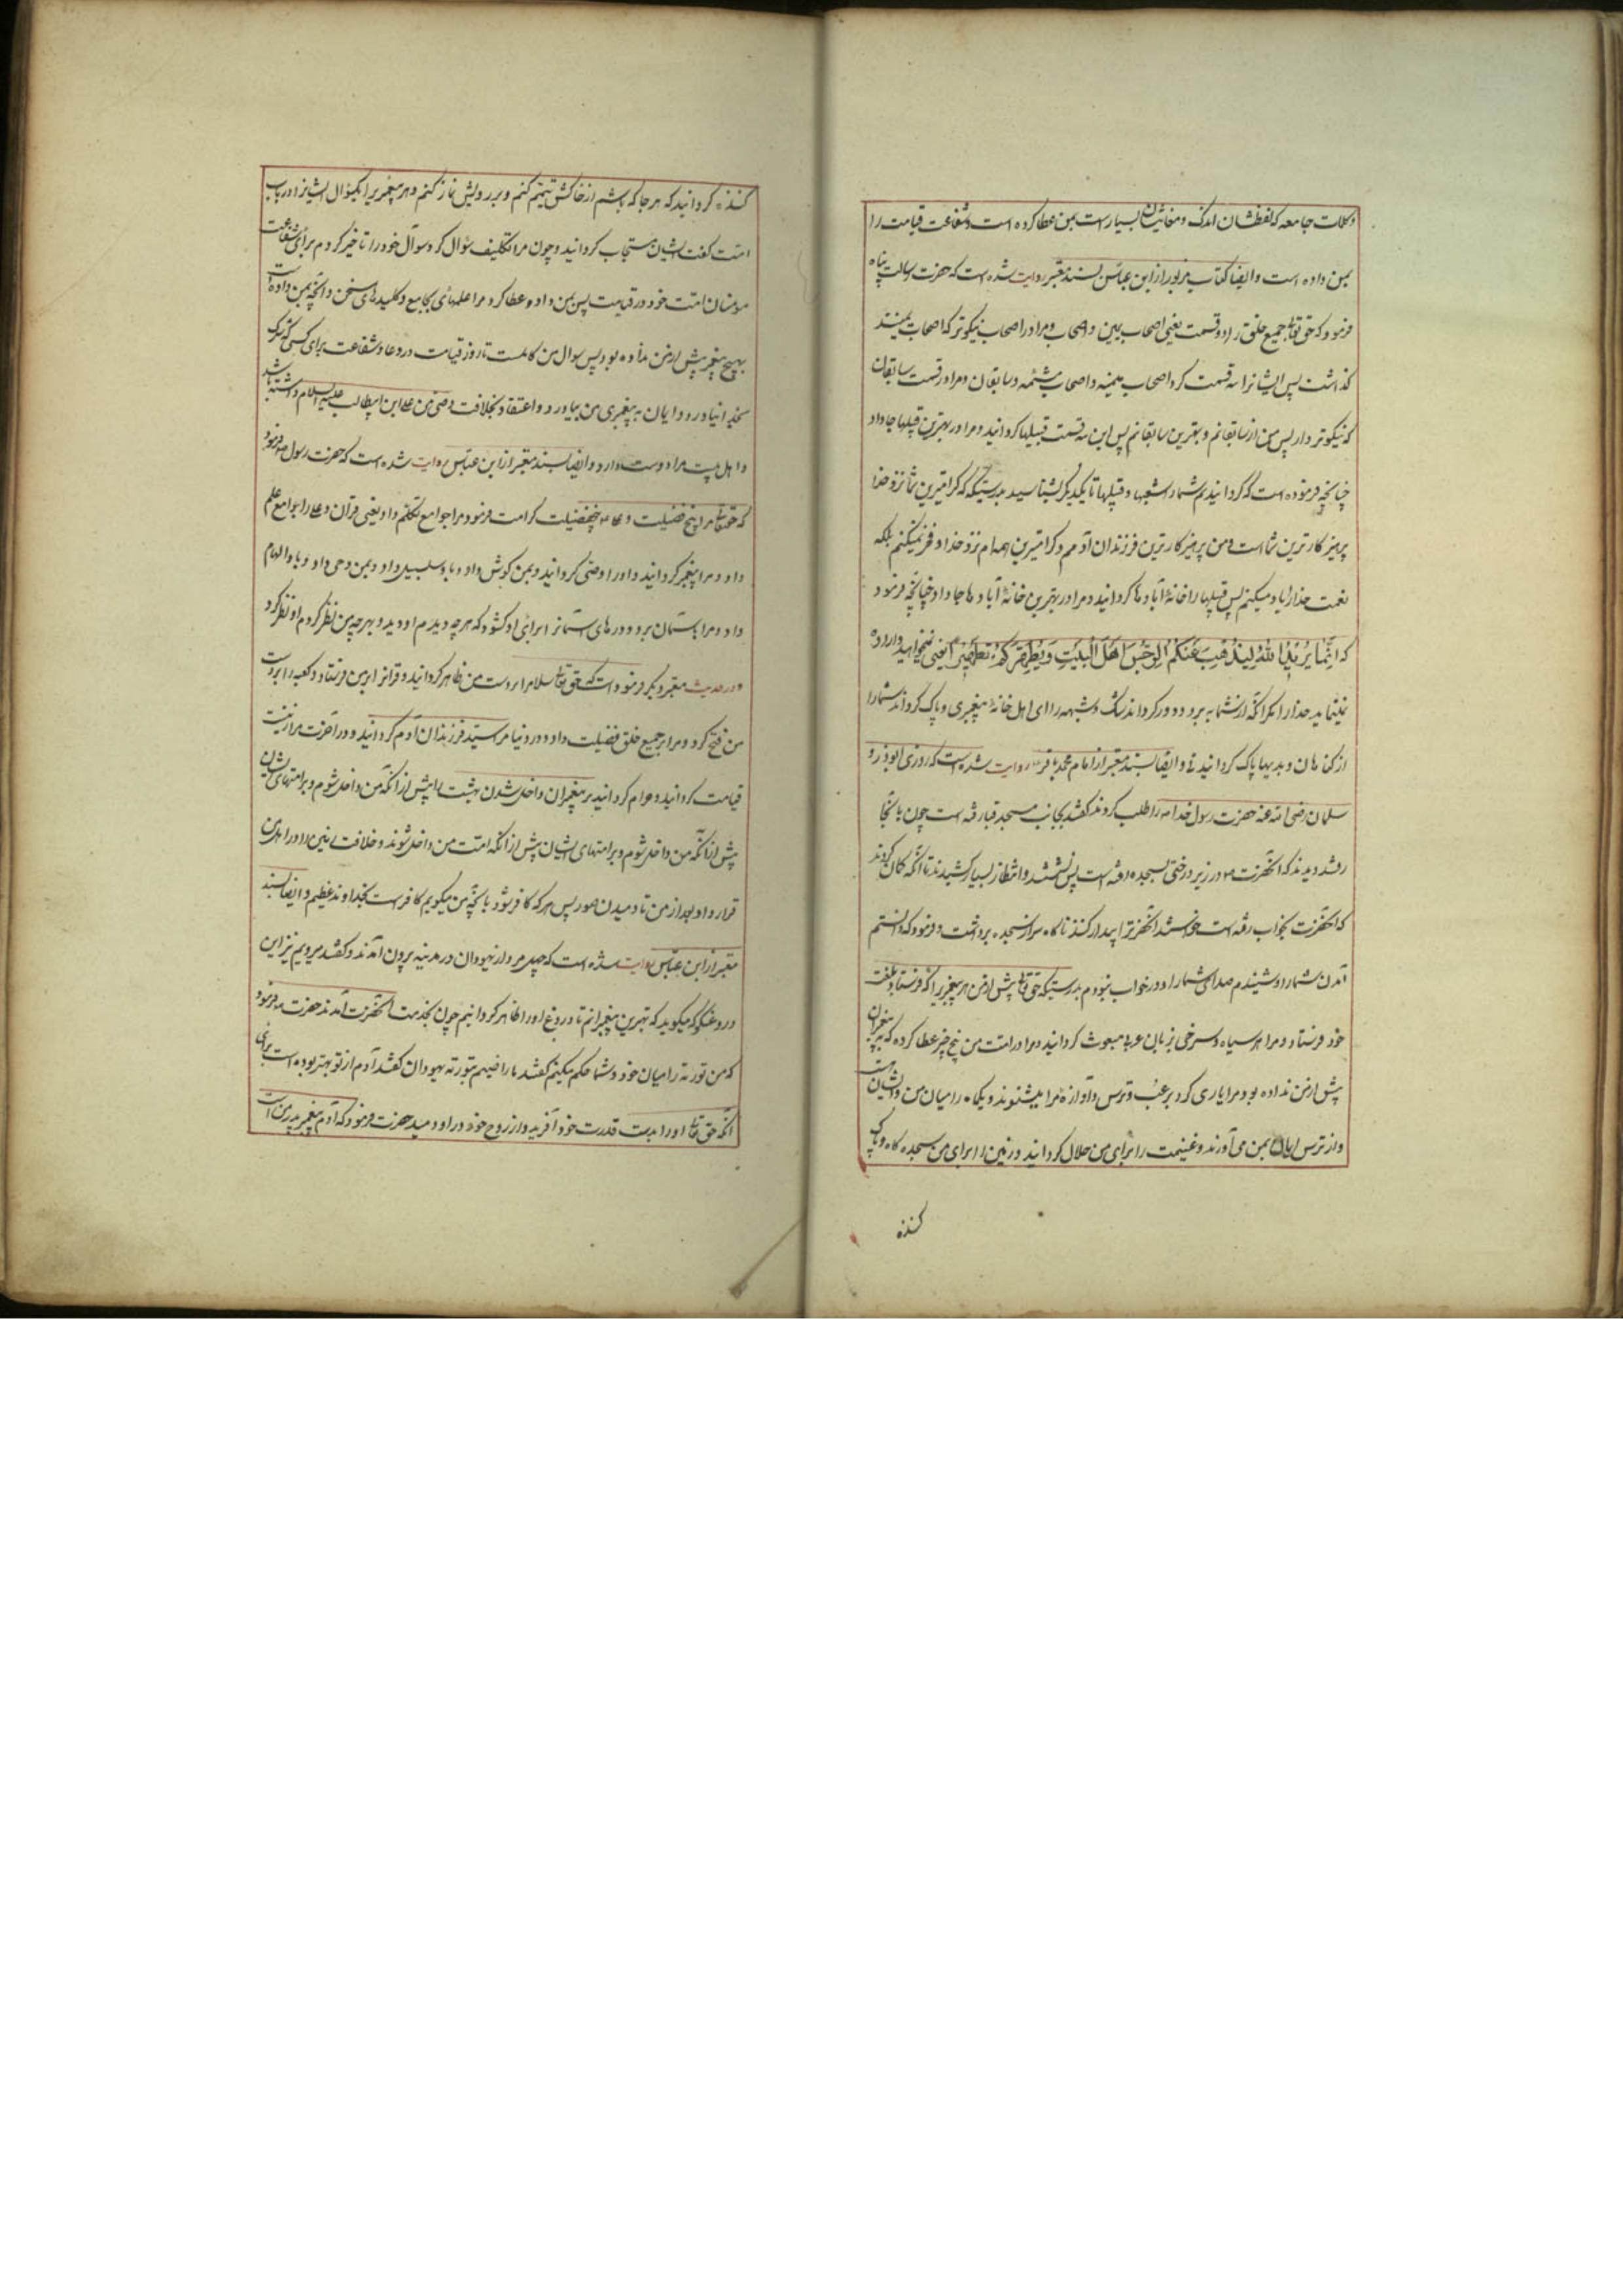 و کلمات جامعه که لفظشان اندک و معانیشان بسیار است بمن عطا کرده است و شفاعت قیامت را
بمن داده است و ایضا کتاب مزبور از ابن عباس بسند معتبر روایت شده است که حضرت رسالت پناه
فرمود که حق تعالی جمیع خلق را دو قسمت یعنی اصحاب یمین و اصحاب و مرا در اصحاب نیکوتر که اصحاب یمینند
گذاشت پس ایشانرا سه قسمت کرد اصحاب میمنه و اصحاب مشئمه و سابقان و مرا در قسمت سابقان
که نیکوتر دار پس من از سابقانم و بهترین سابقانم پس این سه قسمت قبیلها گردانید و مرا در بهترین قبیلها جا داد
چنانچه فرموده است که گردانیدیم شمارا شعبها و قبیلها تا یکدیگر بشناسید بدرستیکه گرامیترین شما نزد خدا
پرهیزکارترین شما است و من پرهیزکارترین فرزندان آدمم و گرامیترین همه ام نزد خدا و فخر نمیکنم بلکه
نعمت خدا را یاد میکنم پس قبیلها را خانه آبادها گردانید و مرا در بهترین خانه آبادها جا داد چنانچه فرمود
که انما یرید الله لیذهب عنکم الرجس اهل البیت و یطهرکم تطهیرا یعنی نمیخواهید و اراده
نمینماید خدا را مگر آنکه از شما ببرد و دور گرداند شک و شبهه را ای اهل خانه پیغمبری و پاک گرداند شمارا
از گناهان و بدیها پاک گردانیدنی و ایضا بسند معتبر از امام محمد باقر روایت شده است که روزی ابوذر و
سلمان رضی الله عنه حضرت رسول خدا را طلب کردند گفتند بجانب مسجد قبا رفته است چون بآنجا
رفتند دیدند که آنحضرت در زیر درختی بسجده رفته است پس نشستند و انتظار بسیار کشیدند تا آنکه گمان کردند
که آنحضرت بخواب رفته است خواستند آنحضرترا بیدار کنند ناگاه سر از سجده برداشت و فرمود که دانستم
آمدن شمارا و شنیدم صدای شمارا و در خواب نبودم بدرستیکه حق تعالی پیش از من هر پیغمبریرا که فرستاد بلغت
خود فرستاد و مرا بهر سیاه و سرخی بزبان عربی مبعوث گردانید و مرا در امت من پنج چیز عطا کرده که به پیغمبران
پیش از من نداده بود مرا یاری کرد برعب و ترس و آوازهٔ مرا میشنوند و یکماهه راه میان من و ایشان است
و از ترس ایمان بمن می‌آورند و غنیمت را برای من حلال گردانید و زمین را برای من سجده‌گاه و پاک
کننده
کننده گردانید که هر جا که باشم از خاکش تیمم کنم و بر رویش نماز کنم و هر پیغمبریرا یکسؤال ایشانرا در باب
امت گفت ایشان مستجاب گردانید و چون مرا تکلیف سؤال کرد سوآل خود را تاخیر کردم برای شفاعت
مؤمنان امت خود در قیامت پس بمن داده و عطا کرد مرا علمهای جامع و کلیدهای سخن و آنچه بمن داده است
بهیچ پیغمبر پیش از من نداده بود پس سوال من کامست تا روز قیامت در دعا و شفاعت برای کسی که شرک
بخدا نیاورد و ایمان به پیغمبری من بیاورد و اعتقاد بخلافت وصی من علی ابن ابیطالب علیه السلام داشته باشد
و اهل بیت مرا دوست دارد و ایضا بسند معتبر از ابن عباس روایت شده است که حضرت رسول فرمود
که حق تعالی مرا پنج فضیلت و علی را پنج فضیلت کرامت فرمود مرا جوامع تکلم داد یعنی قرآن و علی را جوامع علم
داد و مرا پیغمبر گردانید و او را وصی گردانید و بمن کوثر داد و باو سلسبیل داد و بمن وحی داد و باو الهام
داد و مرا بآسمان برد و درهای آسمانرا برای او گشود که هر چه دیدم او دید و بهر چه من نظر کردم او نظر کرد
و در حدیث معتبر دیگر فرموده است که حق تعالی اسلام را بر دست من ظاهر گردانید و قرآنرا بر من فرستاد و کعبه را بر دست
من فتح کرد و مرا بر جمیع خلق فضیلت داد و در دنیا مرا سید فرزندان آدم گردانید و در آخرت مرا زینت
قیامت گردانید و حرام گردانید بر پیغمبران داخل شدن بهشت را پیش از آنکه من داخل شوم و بر امتهای ایشان
پیش از آنکه من داخل شوم و بر امتهای ایشان پیش از آنکه امت من داخل شوند و خلافت زمین را در اهل من
قرار داد بعد از من تا دمیدن صور پس هر که کافر شود بآنچه من میگویم کافر است بخداوند عظیم و ایضا بسند
معتبر از ابن عباس روایت شده است که چهل مرد از یهودان در مدینه بیرون آمدند و گفتند میرویم نزد این
دروغگو که میگوید که بهترین پیغمبرانم تا دروغ او را ظاهر گردانیم چون بخدمت آنحضرت آمدند حضرت فرمود
که من توریة را میان خود و شما حکم میکنم گفتند ما راضییم بتوریة یهودان گفتند آدم از تو بهتر بوده است برای
آنکه حق تعالی او را بدست قدرت خود آفرید و از روح خود در او دمید حضرت فرمود که آدم پیغمبر پدر من است